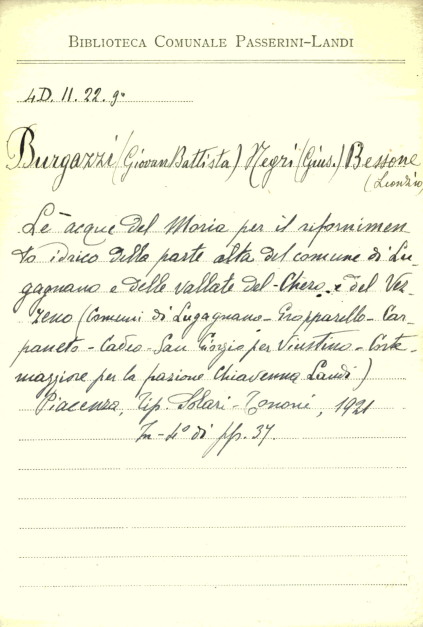 BIBLIOTECA COMUNALE PASSERINI-LANDI
4D. II. 22. 9º
Burgazzi (Giovan Battista) Negri (Gius.) Bessone
(Leonzio)
Le acque del Moria per il rifornimen
to idrico della parte alta del comune di Lu-
gagnano e delle vallate del Chero e del Ver-
zeno (Comuni di Lugagnano - Gropparello - Car-
paneto - Cadeo - San Giorgio per Viustino - Corte-
maggiore per la frazione Chiavenna Landi)
Piacenza, Tip. Solari - Tononi, 1921
In-4º di pp. 37.